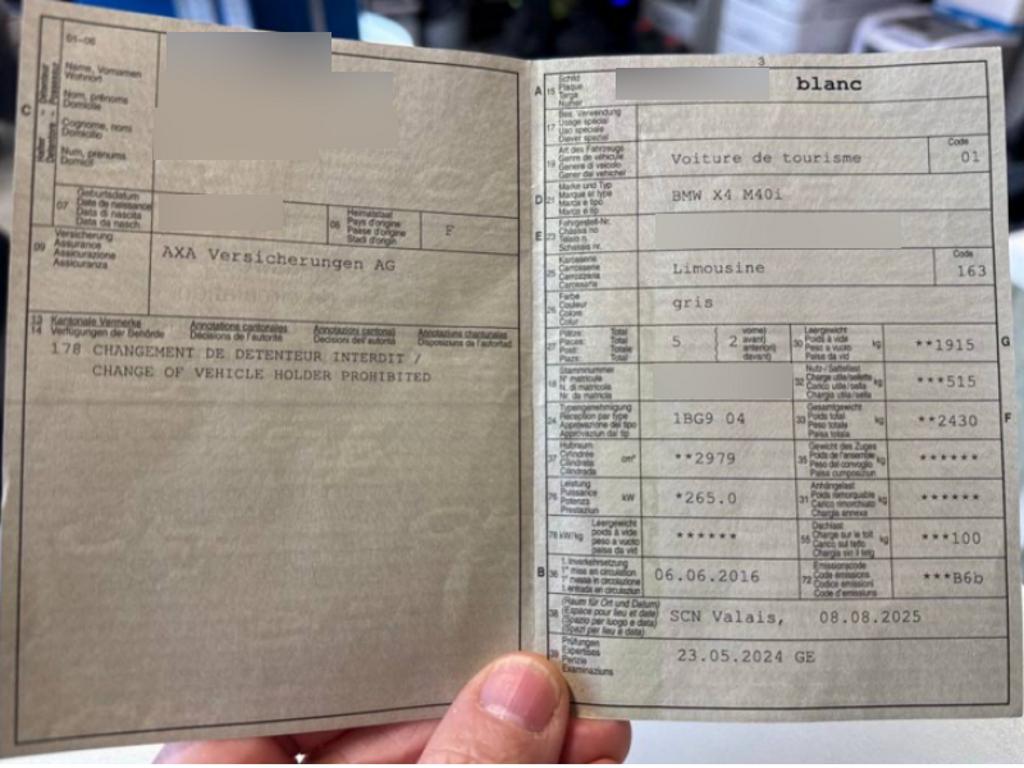 01-06
Name, Vornamen
Wohnort
Nom, prénoms
Domicile
Cognome, nomi
Domicilio
Num, prenums
Domicil
C
Halter - Détenteur
Detentore - Possessur
07
Geburtsdatum
Date de naissance
Data di nascita
Data da nasch.
08
Heimatstaat
Pays d'origine
Paese d'origine
Stadi d'origin
F
09
Versicherung
Assurance
Assicurazione
Assicuranza
AXA Versicherungen AG
13
14
Kantonale Vermerke
Verfügungen der Behörde
Annotations cantonales
Décisions de l'autorité
Annotazioni cantonali
Decisioni dell'autorità
Annotaziuns chantunalas
Disposiziuns da l'autoritad
178 CHANGEMENT DE DETENTEUR INTERDIT /
CHANGE OF VEHICLE HOLDER PROHIBITED
3
A
15
Schild
Plaque
Targa
Numer
blanc
17
Bes. Verwendung
Usage spécial
Uso speciale
Diever spezial
19
Art des Fahrzeugs
Genre de véhicule
Genere di veicolo
Gener dal vehichel
Voiture de tourisme
Code
01
D
21
Marke und Typ
Marque et type
Marca e tipo
Marca e tip
BMW X4 M40i
E
23
Fahrgestell-Nr.
Châssis no
Telaio n.
Schassis nr.
25
Karosserie
Carrosserie
Carrozzeria
Carossaria
Limousine
Code
163
26
Farbe
Couleur
Colore
Colur
gris
27
Plätze: Total
Places: Total
Posti: Totale
Plazs: Total
5
2
vorne)
avant)
anteriori)
davant)
30
Leergewicht
Poids à vide
Peso a vuoto
Paisa da vid
kg
**1915
G
18
Stammnummer
N° matricule
N. di matricola
Nr. da matricla
32
Nutz-/Sattellast
Charge utile/sellette
Carico utile/sella
Chargia utila/sella
kg
***515
24
Typengenehmigung
Réception par type
Approvazione del tipo
Approvaziun dal tip
1BG9 04
33
Gesamtgewicht
Poids total
Peso totale
Paisa totala
kg
**2430
F
37
Hubraum
Cylindrée
Cilindrata
Cilindrada
cm³
**2979
35
Gewicht des Zuges
Poids de l'ensemble
Peso del convoglio
Paisa cumposiziun
kg
******
76
Leistung
Puissance
Potenza
Prestaziun
kW
*265.0
31
Anhängelast
Poids remorquable
Carico rimorchiato
Chargia annexa
kg
******
78 kW/kg
Leergewicht
poids à vide
peso a vuoto
paisa da vid
******
55
Dachlast
Charge sur le toit
Carico sul tetto
Chargia sin il tetg
kg
***100
B
36
1. Inverkehrsetzung
1re mise en circulation
1a messa in circolazione
1. entrada en circulaziun
06.06.2016
72
Emissionscode
Code émissions
Codice emissioni
Code d'emissiuns
***B6b
38
(Raum für Ort und Datum)
(Espace pour lieu et date)
(Spazio per luogo e data)
(Spazi per lieu e data)
SCN Valais, 08.08.2025
39
Prüfungen
Expertises
Perizie
Examinaziuns
23.05.2024 GE